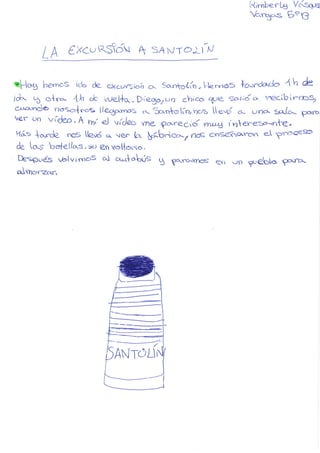 Kimberly Vásquez
Vargas 5º B
LA EXCURSIÓN A SANTOLÍN
Hoy hemos ido de excursión a Santolín. Hemos tardado 1h de
ida y otra 1h de vuelta. Diego, un chico que salió a recibirnos,
cuando nosotros llegamos a Santolín, nos llevó a una sala para
ver un vídeo. A mí el vídeo me pareció muy interesante.
Más tarde nos llevó a ver la fábrica, nos enseñaron el proceso
de las botellas, su envoltorio.
Después volvimos al autobús y paramos en un pueblo para
almorzar.
SANTOLÍN